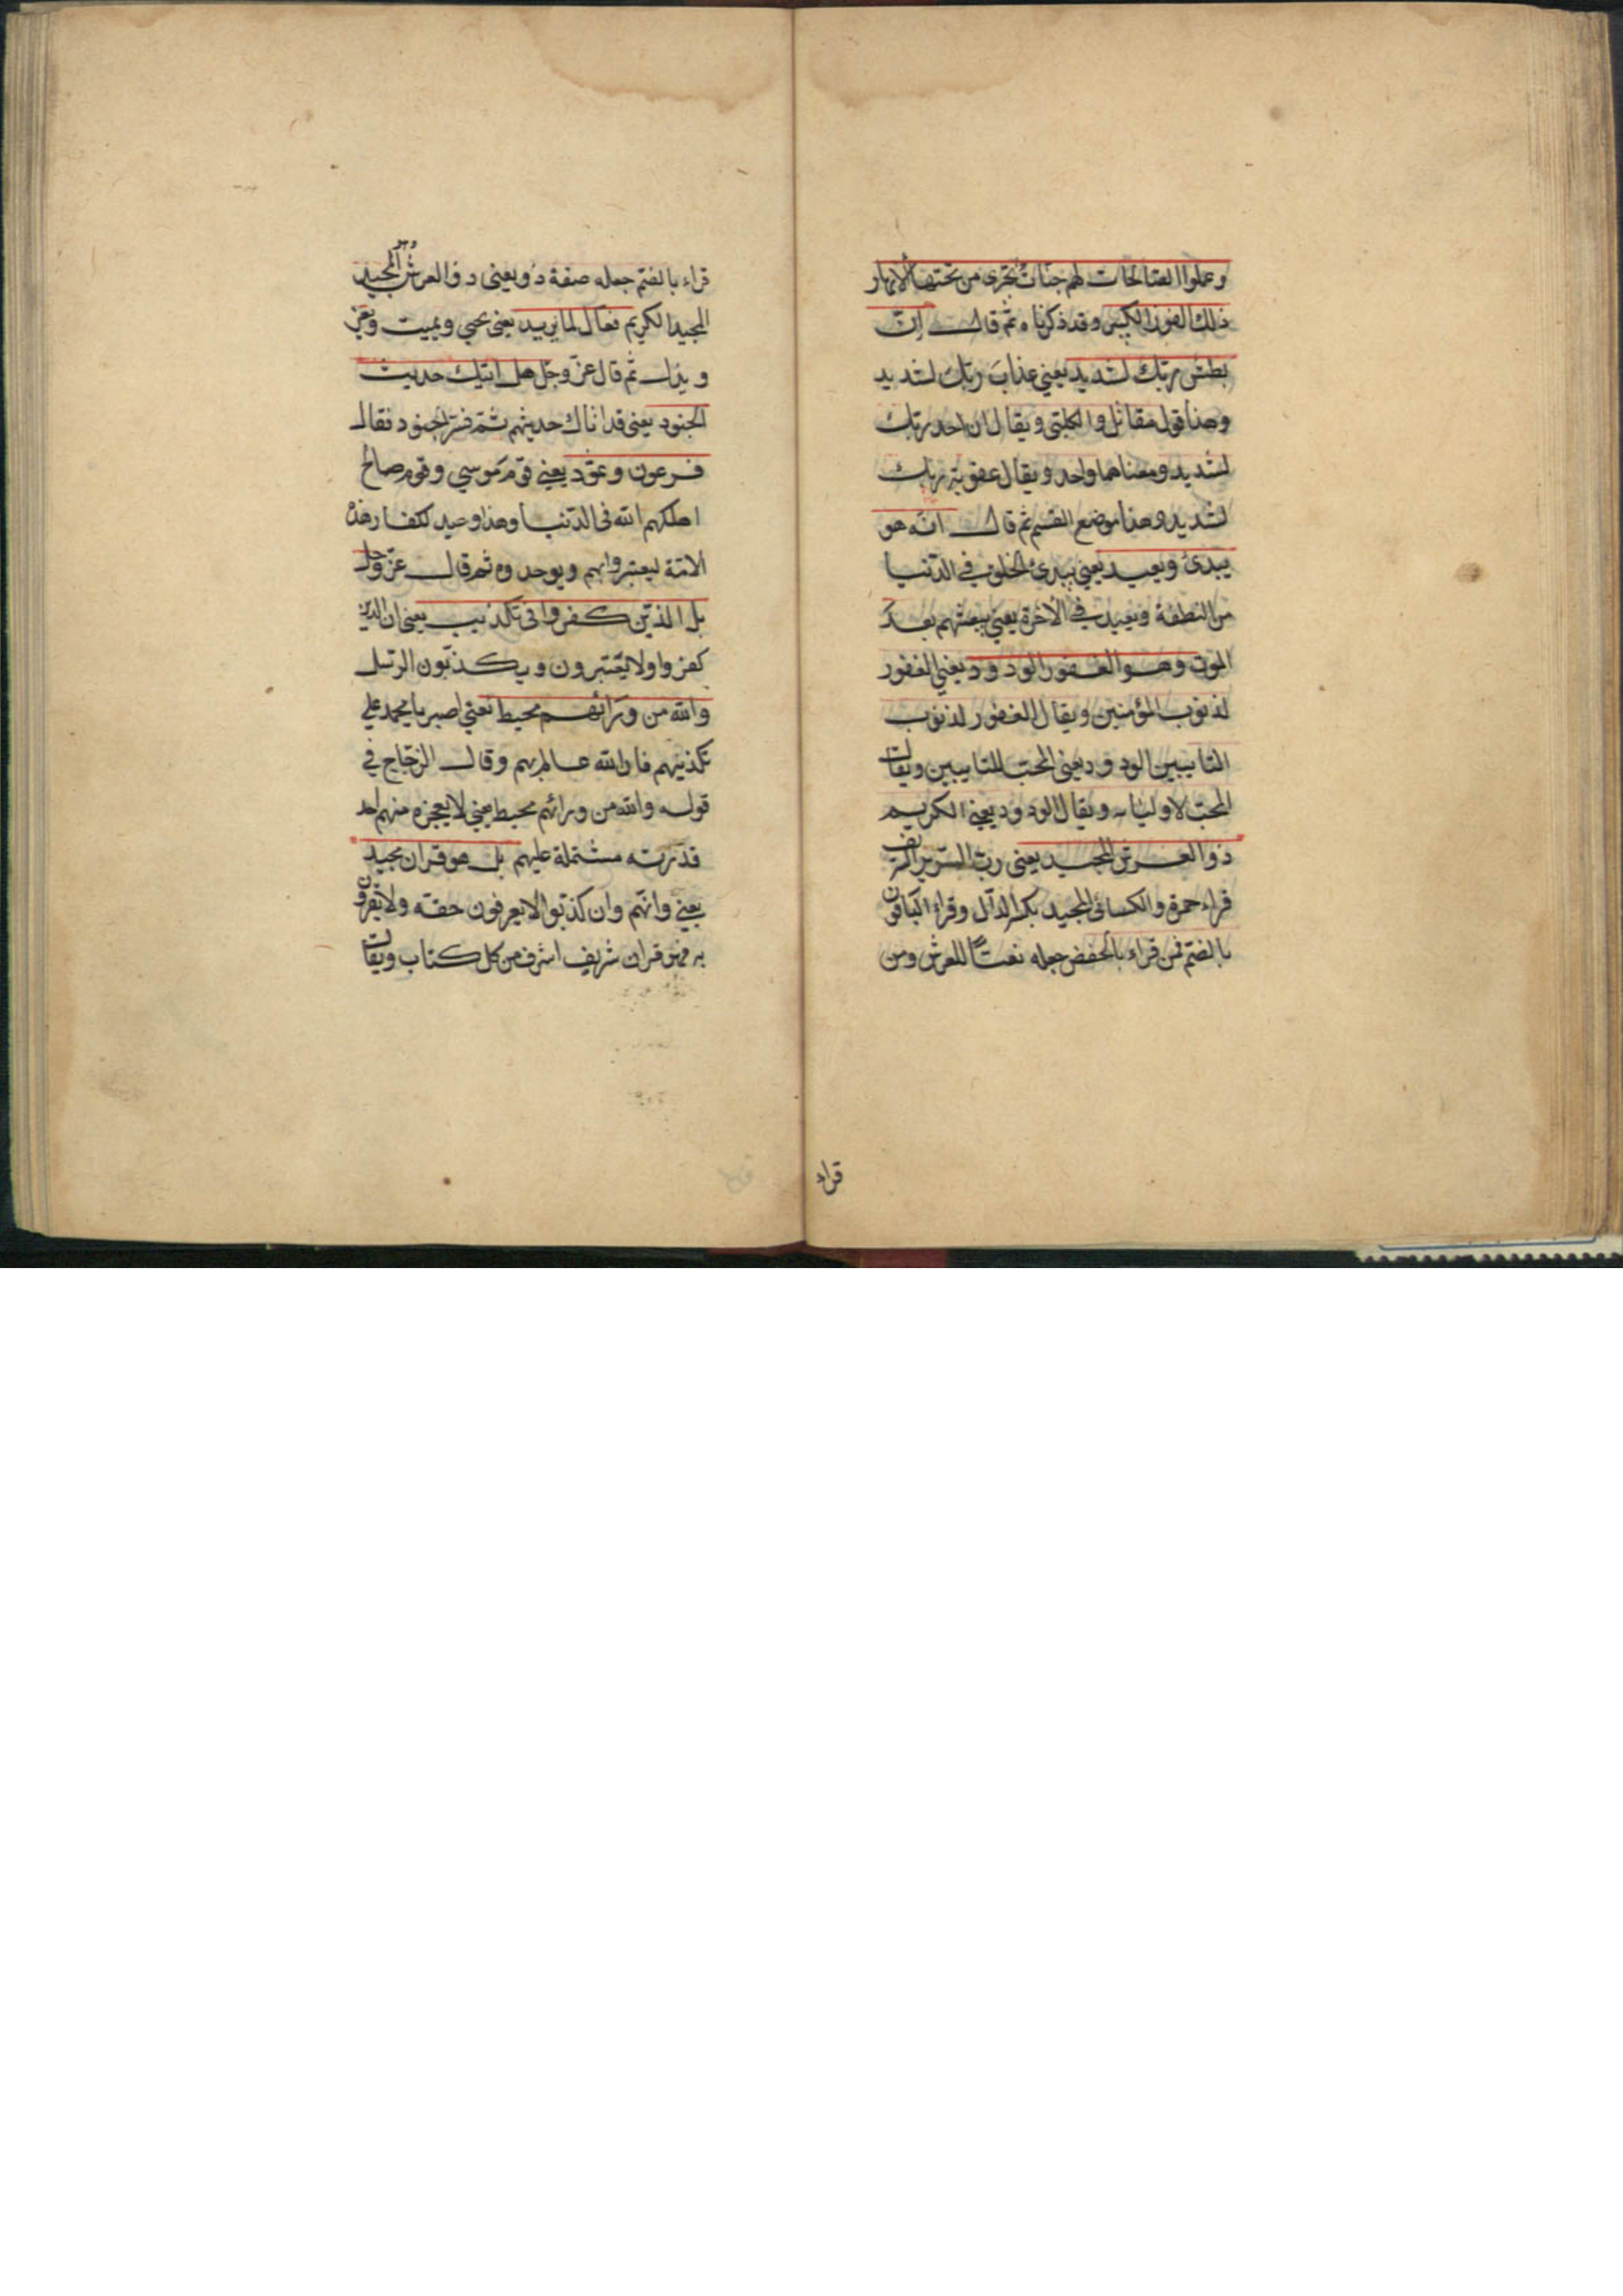 وعملوا الصالحات لهم جنات تجرى من تحتها الانهار
ذلك الفوز الكبير وقد ذكرناه ثم قال ان
بطش ربك لشديد يعني عذاب ربك لشديد
وهذا قول مقاتل والكلبى ويقال ان اخذ ربك
لشديد ومعناهما واحد ويقال عقوبة ربك
لشديد وهذا موضع القسم ثم قال انه هو
يبدئ ويعيد يعني يبدئ الخلق في الدنيا
من النطفة ويعيد في الآخرة يعني يبعثهم بعد
الموت وهو الغفور الودود يعني الغفور
لذنوب المؤمنين ويقال الغفور لذنوب
التايبين الودود يعنى المحب للتايبين ويقال
المحب لاوليائه ويقال الودود يعني الكريم
ذوا العرش المجيد يعنى رب السرير الشريف
قراء حمزة والكسائى المجيد بكسر الدال وقراء الباقون
بالضم فمن قراء بالخفض جعله نعتا للعرش ومن
قراء
قراء بالضم جعله صفة ذو يعنى ذوا العرش المجيد وهو
المجيد الكريم فعال لما يريد يعنى يحيى ويميت ويعز
ويذل ثم قال عز وجل هل اتيك حديث
الجنود يعنى قد اتاك حديثهم ثم فسر الجنود فقال
فرعون وثمود يعني قوم موسي وقوم صالح
اهلكهم الله فى الدنيا وهذا وعيد لكفار هذه
الامة ليعتبروا بهم ويوحدوه ثم قال عز وجل
بل الذين كفروا فى تكذيب يعنى ان الذين
كفروا ولا يعتبرون ويكذبون الرسل
والله من ورائهم محيط يعني اصبر يا محمد علي
تكذيبهم فان الله عالم بهم وقال الزجاج في
قوله والله من ورائهم محيط يعني لا يعجزه منهم احد
قدرته مشتملة عليهم بل هو قران مجيد
يعني وانهم وان كذبوا لا يعرفون حقه ولا يقرون
به فهو قران شريف اشرف من كل كتاب ويقال